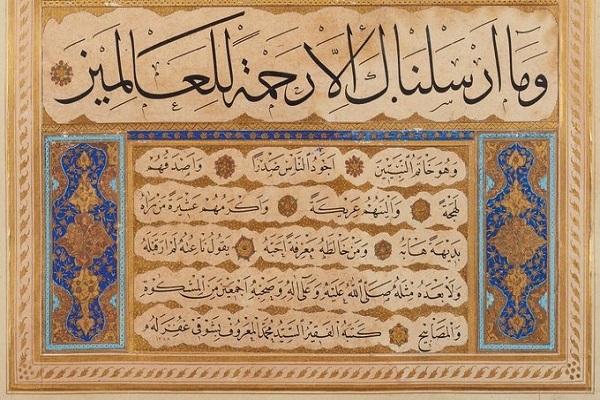 وَمَا اَرْسَلْنَاكَ اِلَّا رَحْمَةً لِلْعَالَمِينَ
وَهُوَ خَاتَمُ النَّبِيّينَ اَجْوَدُ النَّاسِ صَدْرًا وَاَصْدَقُهُمْ
لَهْجَةً وَاَلْيَنُهُمْ عَرِيكَةً وَاَكْرَمُهُمْ عِشْرَةً مَنْ رَاٰهُ
بَدِيهَةً هَابَهُ وَمَنْ خَالَطَهُ مَعْرِفَةً اَحَبَّهُ يَقُولُ نَاعِتُهُ لَمْ اَرَ قَبْلَهُ
وَلَا بَعْدَهُ مِثْلَهُ صَلَّى اللهُ عَلَيْهِ وَعَلٰى اٰلِهِ وَصَحْبِهِ اَجْمَعِينَ مِنَ الْمِشْكٰوةِ
وَالْمَصَابِيحِ كَتَبَهُ الْفَقِيرُ السَّيِّدُ مُحَمَّدُ الْمَعْرُوفُ بِشَوْقِى غُفِرَ لَهُ